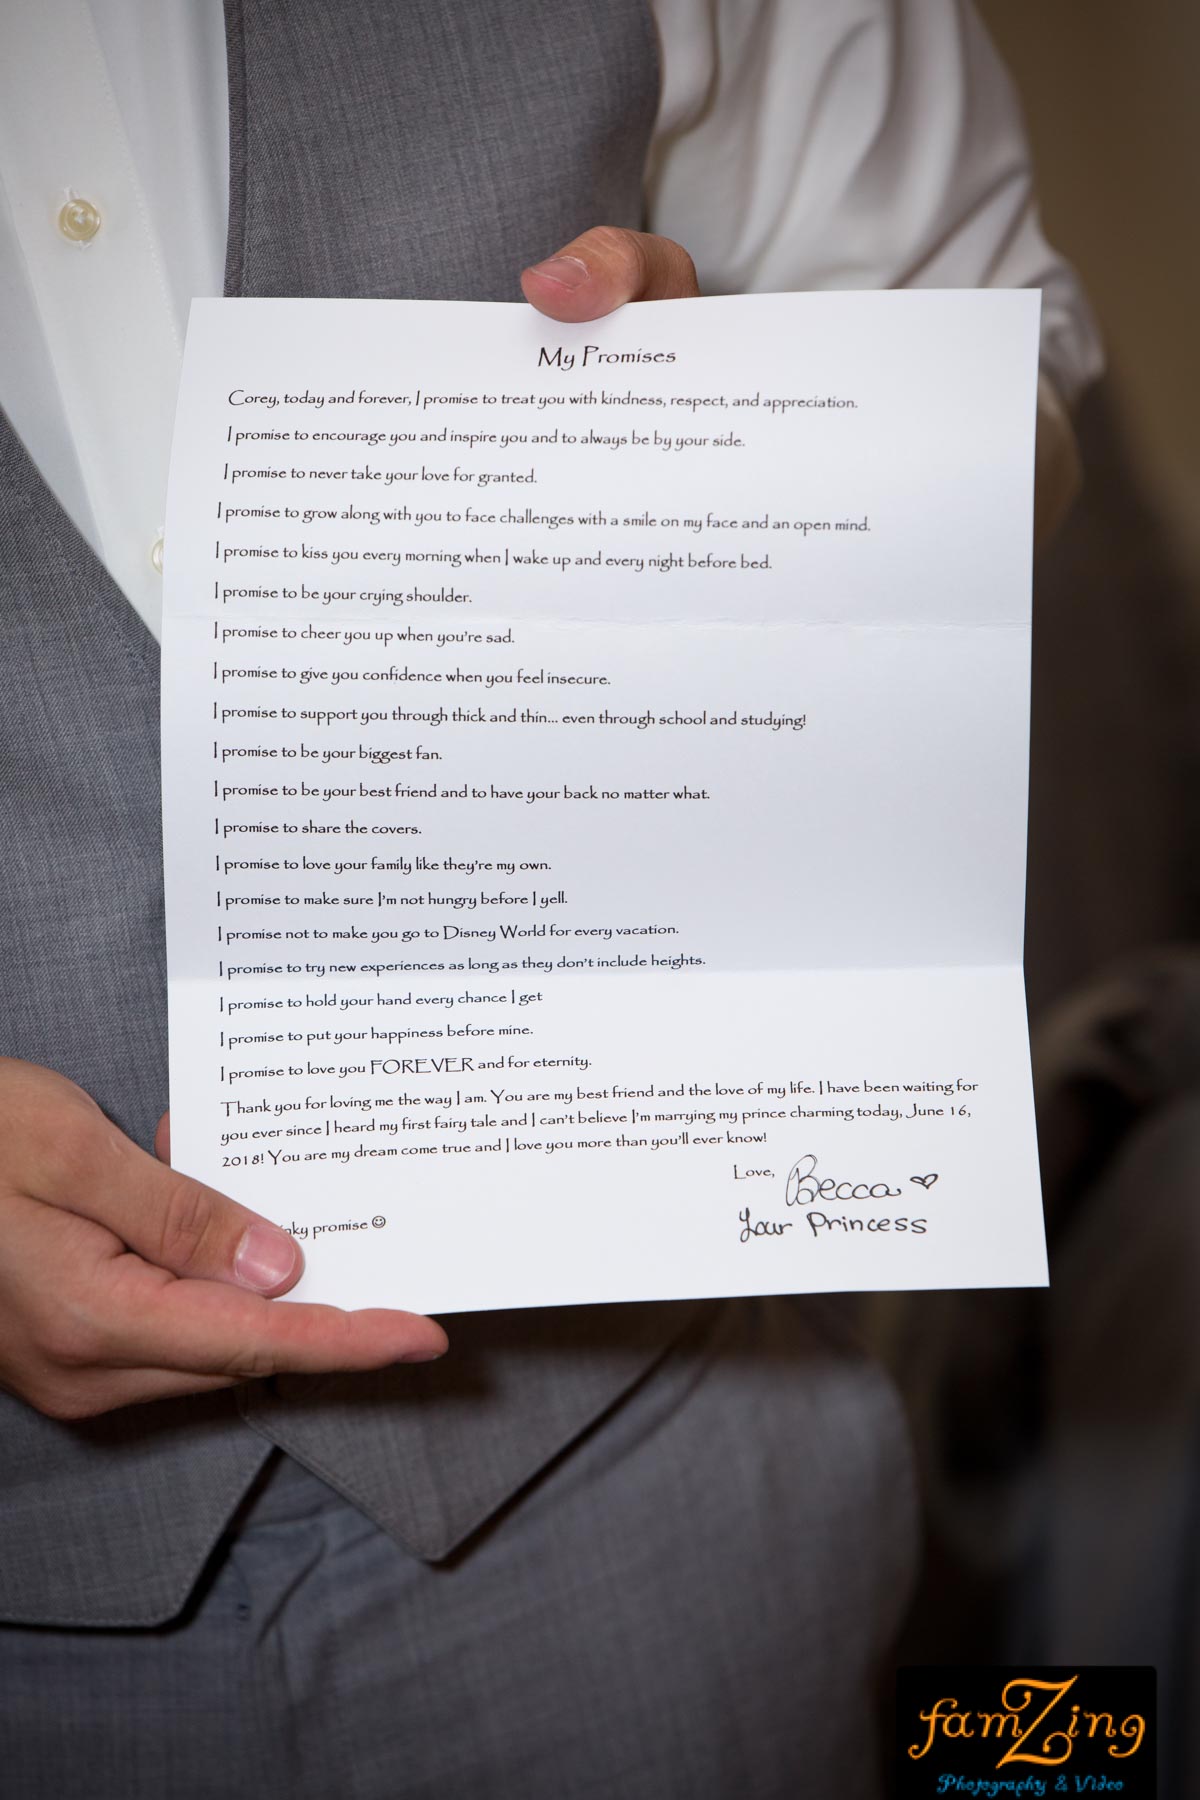 My Promises
Corey, today and forever, I promise to treat you with kindness, respect, and appreciation.
I promise to encourage you and inspire you and to always be by your side.
I promise to never take your love for granted.
I promise to grow along with you to face challenges with a smile on my face and an open mind.
I promise to kiss you every morning when I wake up and every night before bed.
I promise to be your crying shoulder.
I promise to cheer you up when you're sad.
I promise to give you confidence when you feel insecure.
I promise to support you through thick and thin... even through school and studying!
I promise to be your biggest fan.
I promise to be your best friend and to have your back no matter what.
I promise to share the covers.
I promise to love your family like they're my own.
I promise to make sure I'm not hungry before I yell.
I promise not to make you go to Disney World for every vacation.
I promise to try new experiences as long as they don't include heights.
I promise to hold your hand every chance I get
I promise to put your happiness before mine.
I promise to love you FOREVER and for eternity.
Thank you for loving me the way I am. You are my best friend and the love of my life. I have been waiting for
you ever since I heard my first fairy tale and I can't believe I'm marrying my prince charming today, June 16,
2018! You are my dream come true and I love you more than you'll ever know!
Love, Becca ♡
Your Princess
promise ☺
famZing
Photography & Video